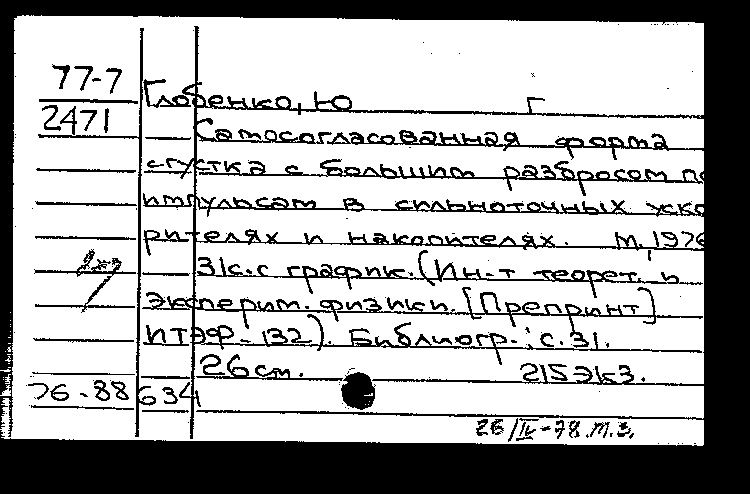 77-7
2471
Глобенко, Ю Г
Самосогласованная форма
сгустка с большим разбросом по
импульсам в сильноточных уско
рителях и накопителях. М, 1976
31с. с график. (Ин-т теорет. и
эксперим. физики. [Препринт]
ИТЭФ-132). Библиогр.: с. 31.
26 см. 215 экз.
76-88 634
26/IV-78. М.З.